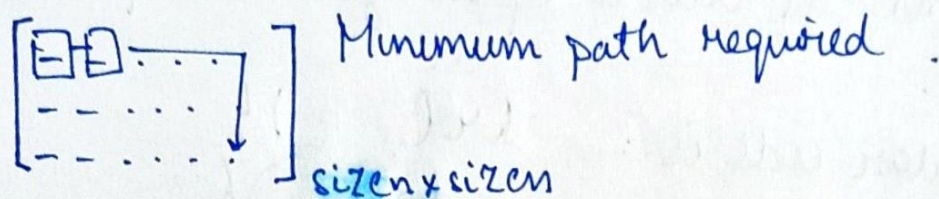 Minimum path required .
sizen x sizen